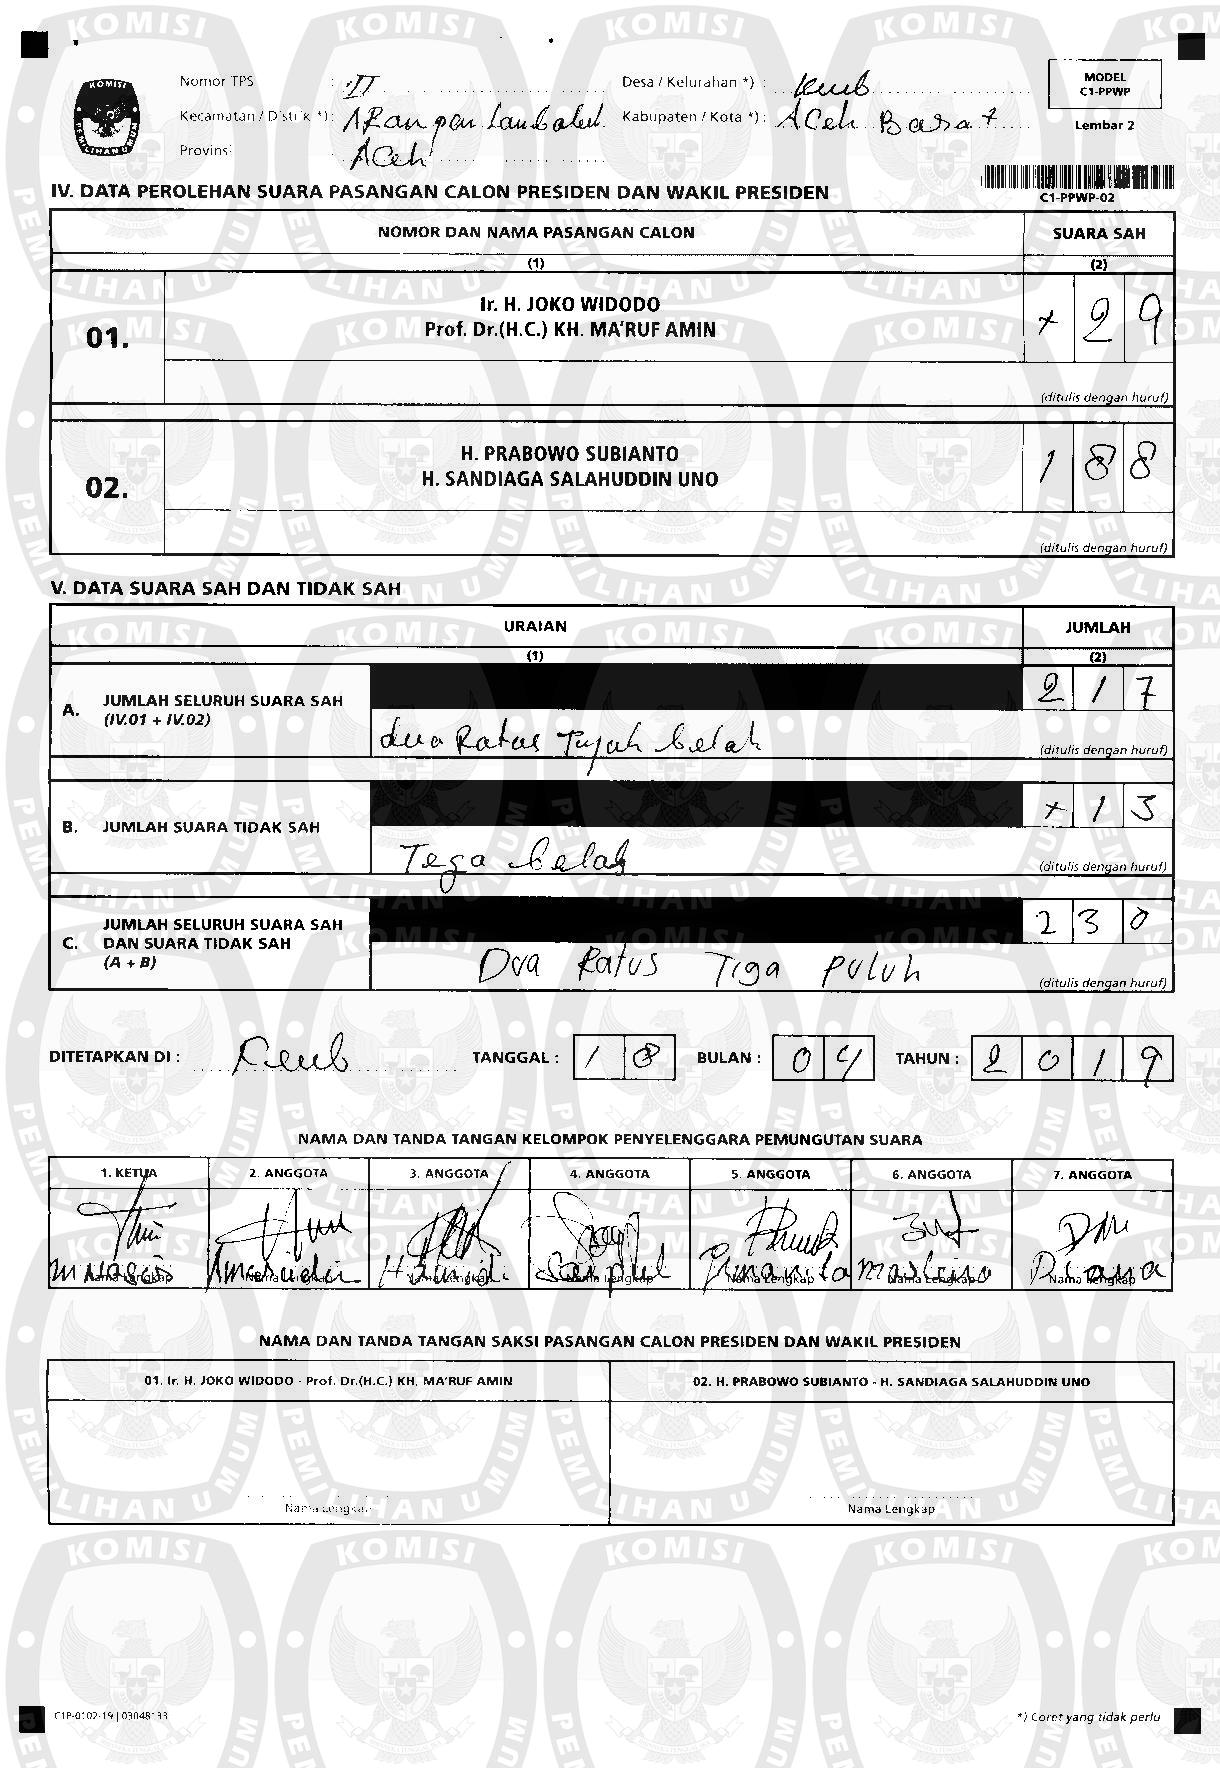 Nomor TPS : II
Desa / Kelurahan *) : Reub
MODEL
C1-PPWP
Kecamatan / Distrik *) : ARongan Lambalek
Kabupaten / Kota *) : ACeh Barat
Lembar 2
Provinsi : ACeh
IV. DATA PEROLEHAN SUARA PASANGAN CALON PRESIDEN DAN WAKIL PRESIDEN
C1-PPWP-02
NOMOR DAN NAMA PASANGAN CALON SUARA SAH
(1) (2)
01. Ir. H. JOKO WIDODO
Prof. Dr.(H.C.) KH. MA'RUF AMIN
x 2 9
(ditulis dengan huruf)
02. H. PRABOWO SUBIANTO
H. SANDIAGA SALAHUDDIN UNO
1 8 8
(ditulis dengan huruf)
V. DATA SUARA SAH DAN TIDAK SAH
URAIAN JUMLAH
(1) (2)
A. JUMLAH SELURUH SUARA SAH
(IV.01 + IV.02)
2 1 7
dua Ratus Tujuh belah
(ditulis dengan huruf)
B. JUMLAH SUARA TIDAK SAH
x 1 3
Tega belas
(ditulis dengan huruf)
C. JUMLAH SELURUH SUARA SAH
DAN SUARA TIDAK SAH
(A + B)
2 3 0
Dua Ratus Tiga puluh
(ditulis dengan huruf)
DITETAPKAN DI : Reub TANGGAL : 1 8 BULAN : 0 4 TAHUN : 2 0 1 9
NAMA DAN TANDA TANGAN KELOMPOK PENYELENGGARA PEMUNGUTAN SUARA
1. KETUA 2. ANGGOTA 3. ANGGOTA 4. ANGGOTA 5. ANGGOTA 6. ANGGOTA 7. ANGGOTA
Diana
Nama Lengkap Nama Lengkap Nama Lengkap Nama Lengkap Nama Lengkap Nama Lengkap Nama Lengkap
NAMA DAN TANDA TANGAN SAKSI PASANGAN CALON PRESIDEN DAN WAKIL PRESIDEN
01. Ir. H. JOKO WIDODO - Prof. Dr.(H.C.) KH. MA'RUF AMIN
02. H. PRABOWO SUBIANTO - H. SANDIAGA SALAHUDDIN UNO
Nama Lengkap Nama Lengkap
C1P-0102-19 | 03048133
*) Coret yang tidak perlu